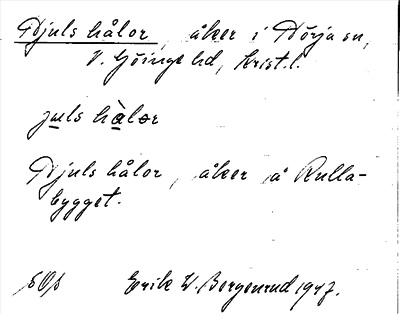 Djuls hålor, åker i Dörja sn,
V. Göinge hd, Krist. l.
juls hàlor
Djuls hålor, åker å Rulla-
bygget.
Erik W. Bergenrud 1947.